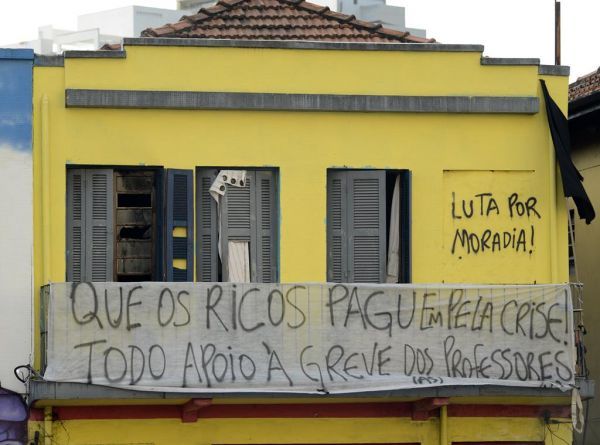 LUTA POR
MORADIA!
QUE OS RICOS PAGUEM PELA CRISE!
TODO APOIO À GREVE DOS PROFESSORES
(AS) (AS)